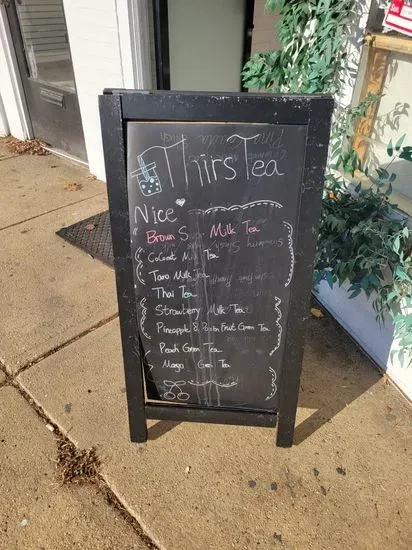 ThirsTea
Nice
Brown Sugar Milk Tea
Coconut Milk Tea
Taro Milk Tea
Thai Tea
Strawberry Milk Tea
Pineapple & Passion Fruit Green Tea
Peach Green Tea
Mango Green Tea